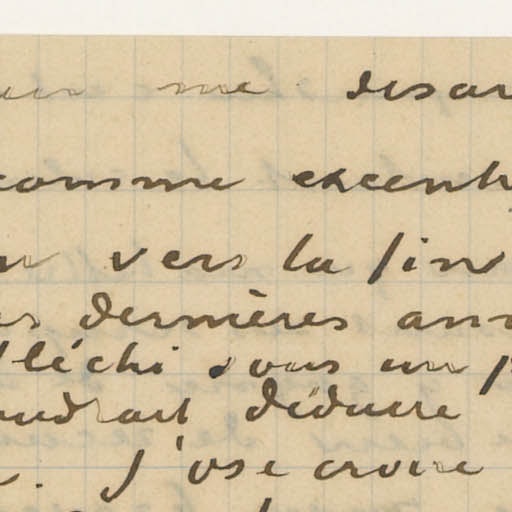 me disar
comme excent
vers la fin
dernières ann
fléchi sous un p
déduire
J'ose croire